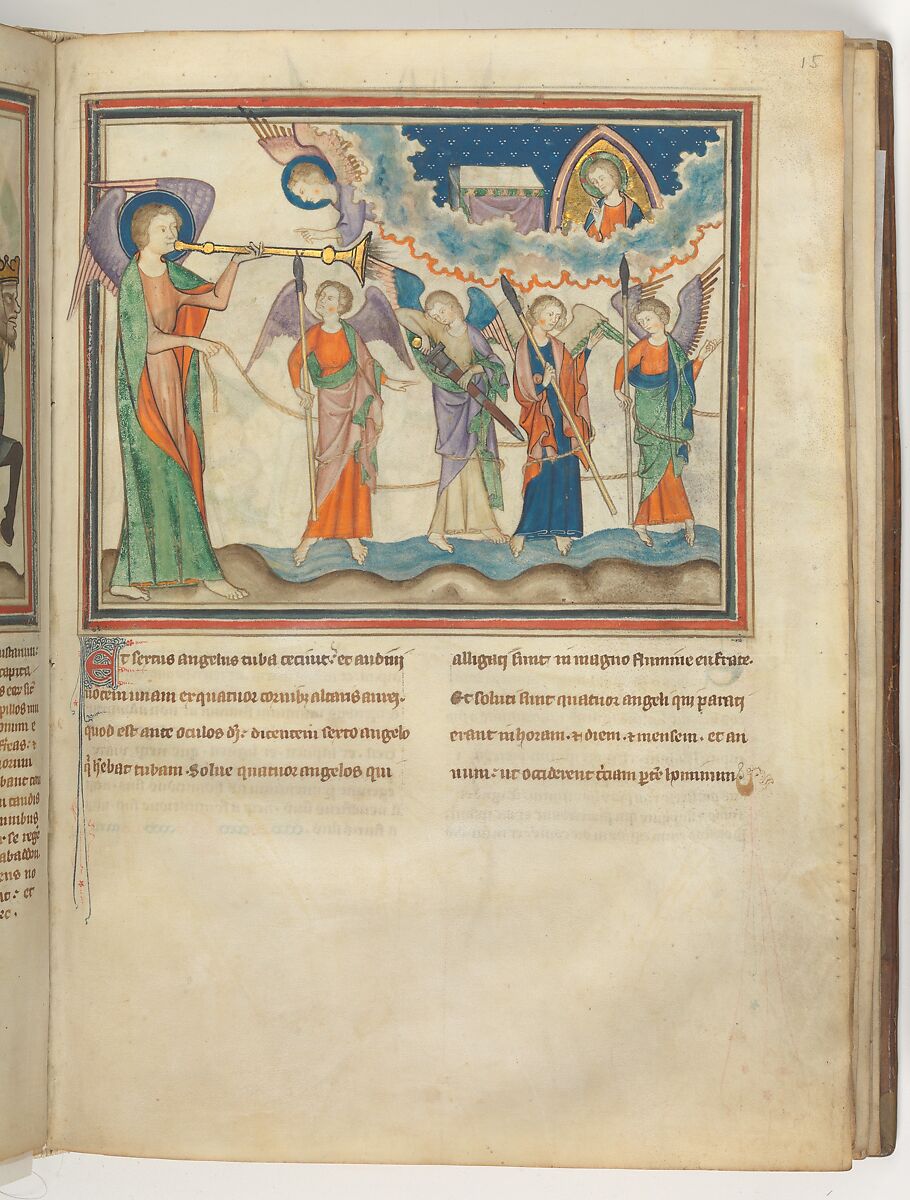 15
Et sextus angelus tuba cecinit: et audiui
uocem unam ex quatuor cornibꝫ altaris aurei.
quod est ante oculos dī: dicentem sexto angelo
q̇ hēbat tubam. Solue quatuor angelos qui
alligati sunt in magno flumine eufrate.
Et soluti sunt quatuor angeli qui parati
erant in horam. ⁊ diem. ⁊ mensem. et an
num: ut occiderent t̄ciam p̄tē hominum